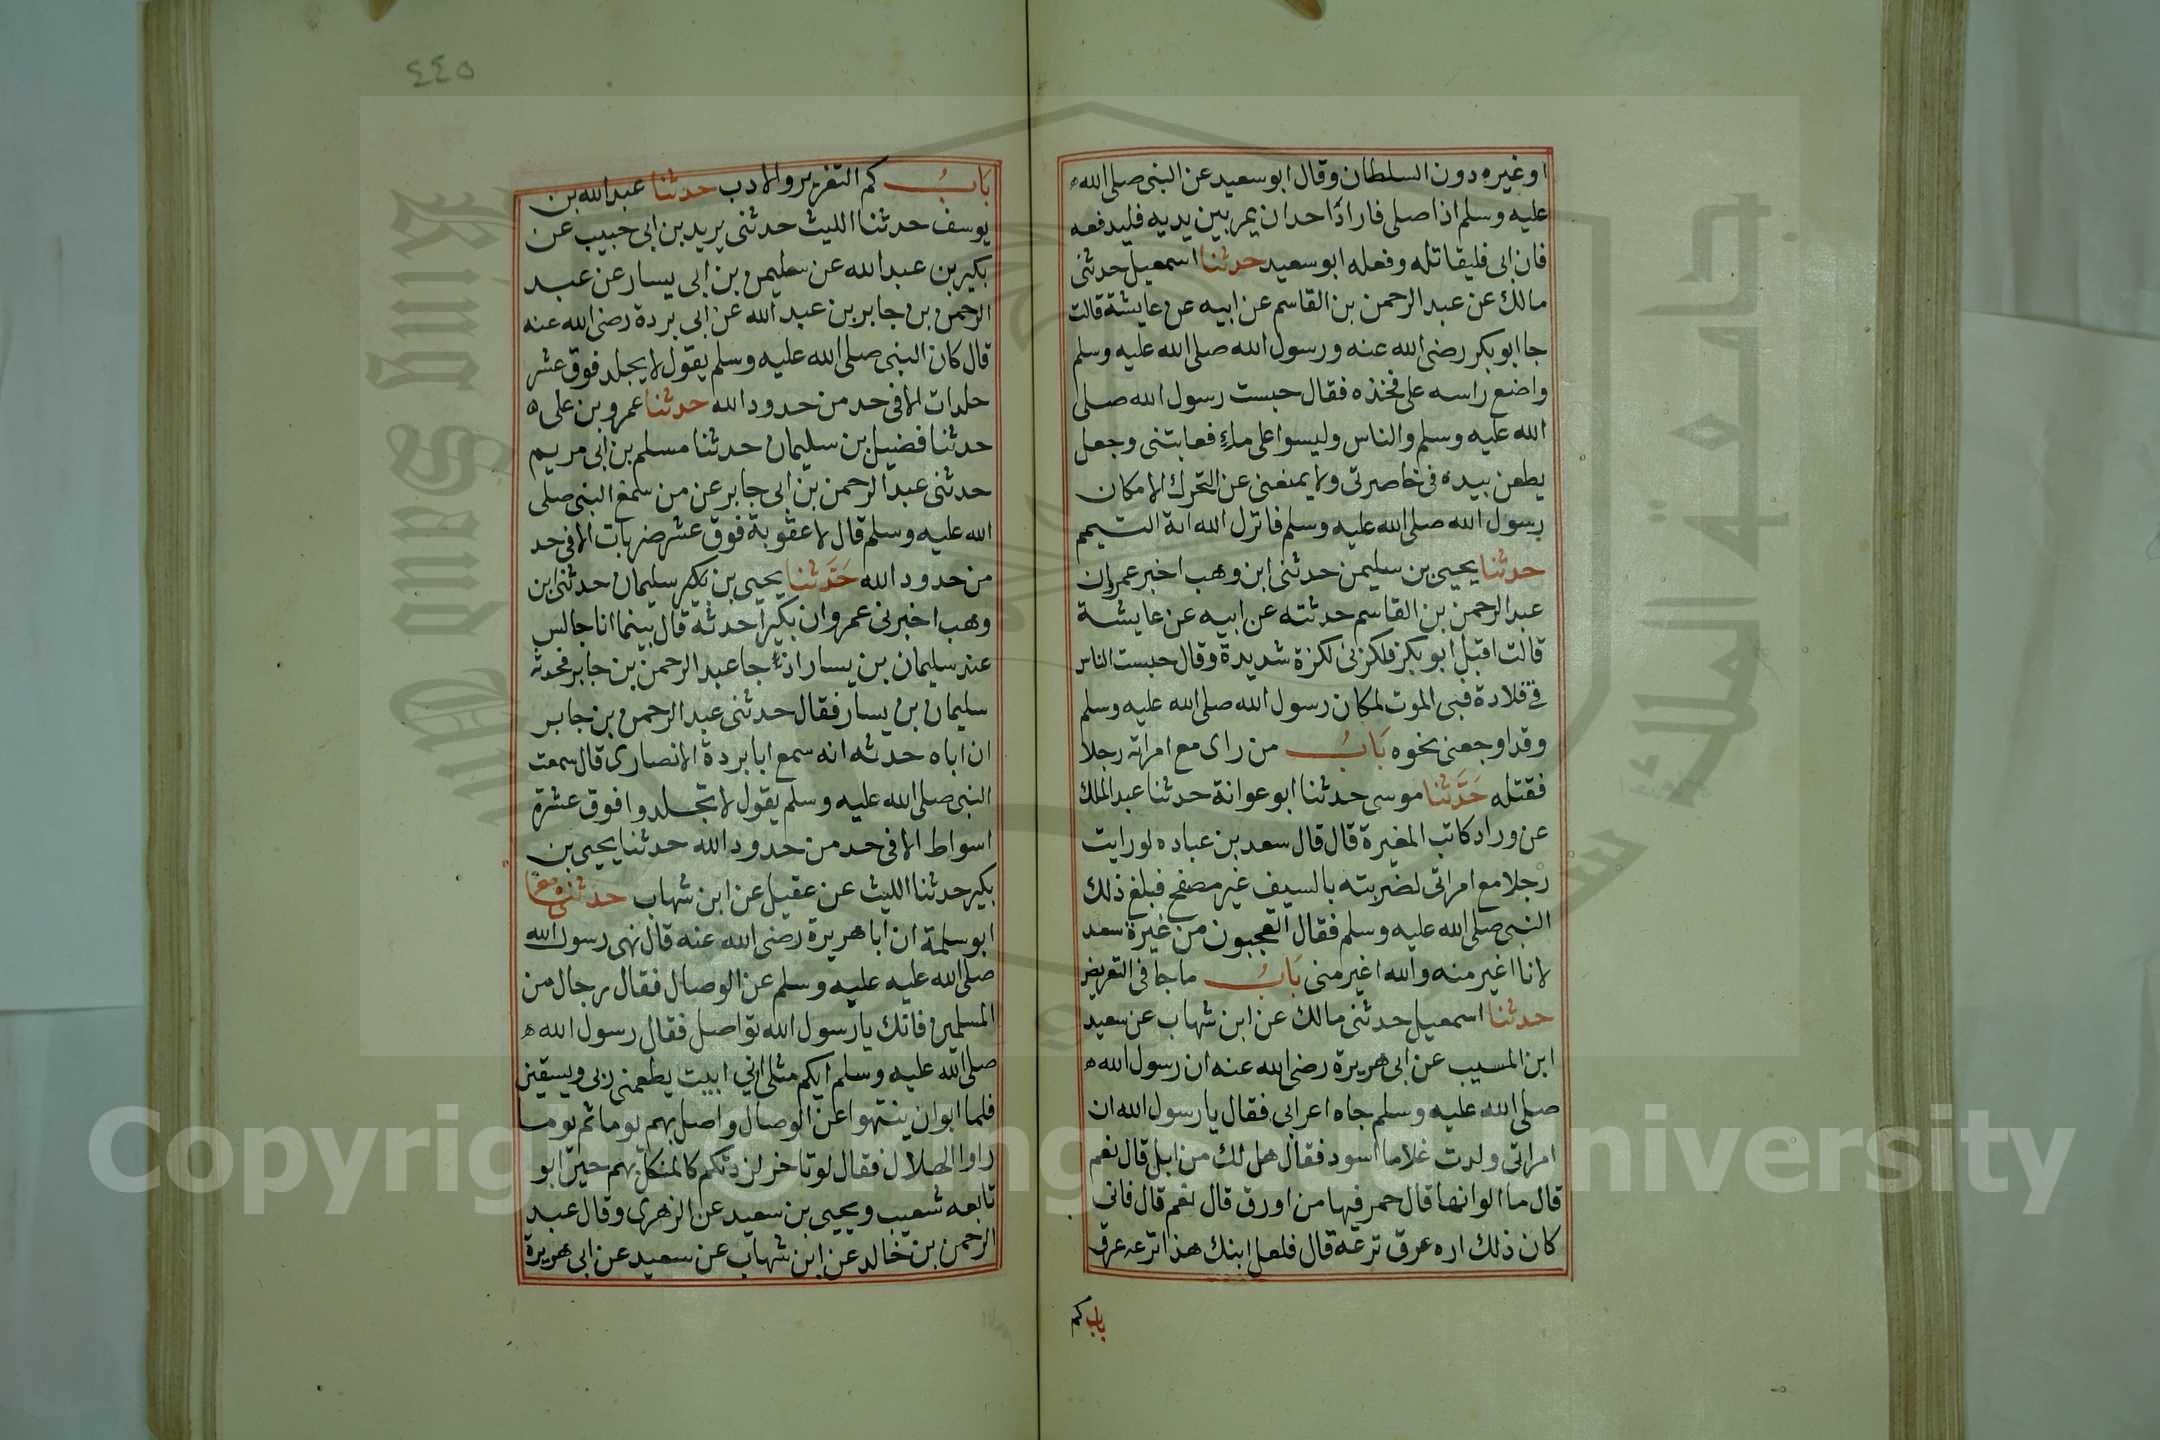 ٤٤٥
او غيره دون السلطان وقال ابو سعيد عن النبى صلى الله
عليه وسلم اذا صلى فاراد احد ان يمر بين يديه فليدفعه
فان ابى فليقاتله وفعله ابو سعيد حدثنا اسمعيل حدثنى
مالك عن عبد الرحمن بن القاسم عن ابيه عن عايشة قالت
جا ابو بكر رضى الله عنه ورسول الله صلى الله عليه وسلم
واضع راسه على فخذه فقال حبست رسول الله صلى
الله عليه وسلم والناس وليسوا على ماء فعاتبنى وجعل
يطعن بيده فى خاصرتى ولا يمنعنى عن التحرك الا مكان
رسول الله صلى الله عليه وسلم فانزل الله اية التيمم
حدثنا يحيى بن سليمن حدثنى ابن وهب اخبر عمرو ان
عبد الرحمن بن القاسم حدثته عن ابيه عن عايشة
قالت اقبل ابو بكر فلكزنى لكزة شديدة وقال حبست الناس
فى قلادة فبى الموت لمكان رسول الله صلى الله عليه وسلم
وقد اوجعنى نحوه بَابُ من راى مع امراته رجلا
فقتله حَدَّثنا موسى حدثنا ابو عوانة حدثنا عبد الملك
عن وراد كاتب المغيرة قال قال سعد بن عباده لو رايت
رجلا مع امراتى لضربته بالسيف غير مصفح فبلغ ذلك
النبى صلى الله عليه وسلم فقال اتعجبون من غيرة سعد
لانا اغير منه والله اغير منى بَابُ ما جا فى التعريض
حدثنا اسمعيل حدثنى مالك عن ابن شهاب عن سعيد
ابن المسيب عن ابى هريرة رضى الله عنه ان رسول الله
صلى الله عليه وسلم جاه اعرابى فقال يا رسول الله ان
امراتى ولدت غلاما اسود فقال هل لك من ابل قال نعم
قال ما الوانها قال حمر فيها من اورق قال نعم قال فانى
كان ذلك اره عرق نزعه قال فلعل ابنك هذا نزعه عرق
باب كم
بَابُ كم التعزير والادب حدثنا عبد الله بن
يوسف حدثنا الليث حدثنى يزيد بن ابى حبيب عن
بكير بن عبد الله عن سليمن بن ابى يسار عن عبد
الرحمن بن جابر بن عبد الله عن ابى بردة رضى الله عنه
قال كان النبى صلى الله عليه وسلم يقول لا يجلد فوق عشر
جلدات الا فى حد من حدود الله حدثنا عمرو بن على
حدثنا فضيل بن سليمان حدثنا مسلم بن ابى مريم
حدثنى عبد الرحمن بن ابى جابر عن من سمع النبى صلى
الله عليه وسلم قال لا عقوبة فوق عشر ضربات الا فى حد
من حدود الله حَدَّثنا يحيى بن بكير سليمان حدثنى ابن
وهب اخبرنى عمرو ان بكيرا حدثه قال بينما انا جالس
عند سليمان بن يسار اذ جا عبد الرحمن بن جابر فحدثه
سليمان بن يسار فقال حدثنى عبد الرحمن بن جابر
ان اباه حدثه انه سمع ابا بردة الانصارى قال سمعت
النبى صلى الله عليه وسلم يقول لا تجلدوا فوق عشرة
اسواط الا فى حد من حدود الله حدثنا يحيى بن
بكير حدثنا الليث عن عقيل عن ابن شهاب حدثنى
ابو سلمة ان ابا هريرة رضى الله عنه قال نهى رسول الله
صلى الله عليه عليه وسلم عن الوصال فقال رجال من
المسلمين فانك يا رسول الله تواصل فقال رسول الله
صلى الله عليه وسلم ايكم مثلى انى ابيت يطعمنى ربى ويسقين
فلما ابوان ينتهوا عن الوصال واصل بهم يوما ثم يوما
راوا الهلال فقال لو تاخر لزدتكم كالمنكل بهم حين ابو
تابعه شعيب ويحيى بن سعيد عن الزهرى وقال عبد
الرحمن بن خالد عن ابن شهاب عن سعيد عن ابى هريرة
جامعة الملك سعود
King Saud University
Copyright © King Saud University